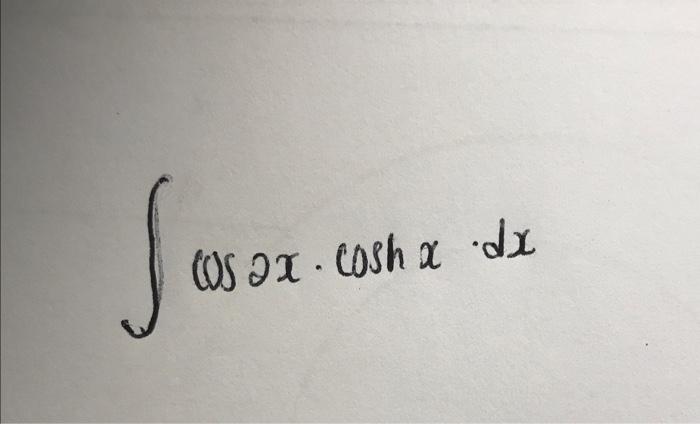 ∫ cos 2x · cosh x · dx